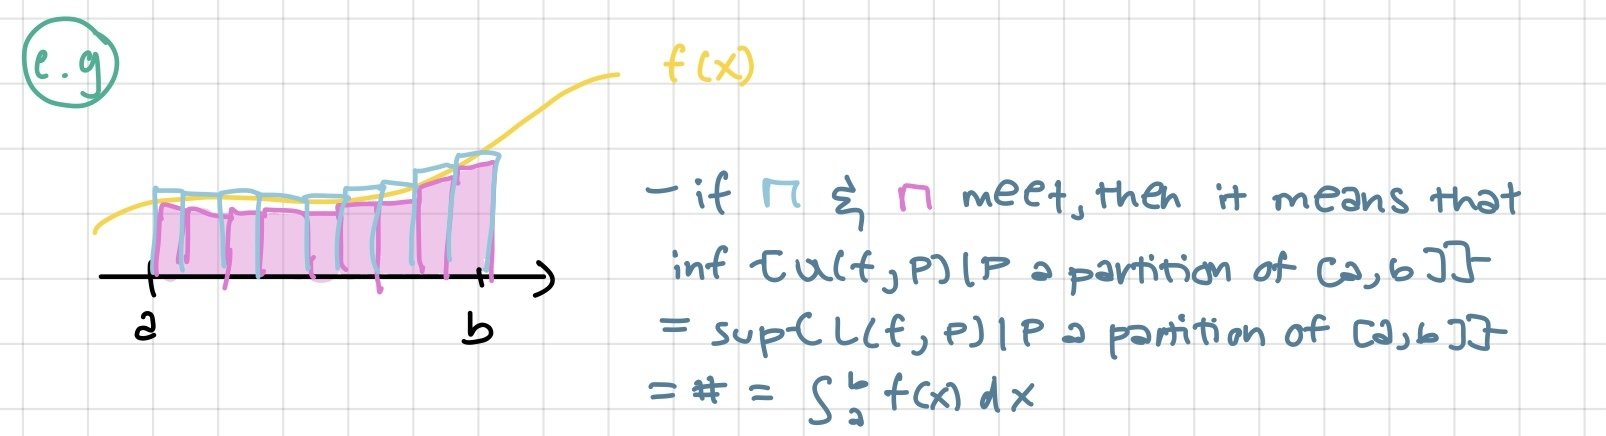 e.g
f(x)
- if ⊓ & ⊓ meet, then it means that
inf {U(f, P) | P a partition of [a, b]}
= sup{L(f, P) | P a partition of [a, b]}
= # = ∫ₐᵇ f(x) dx
a b